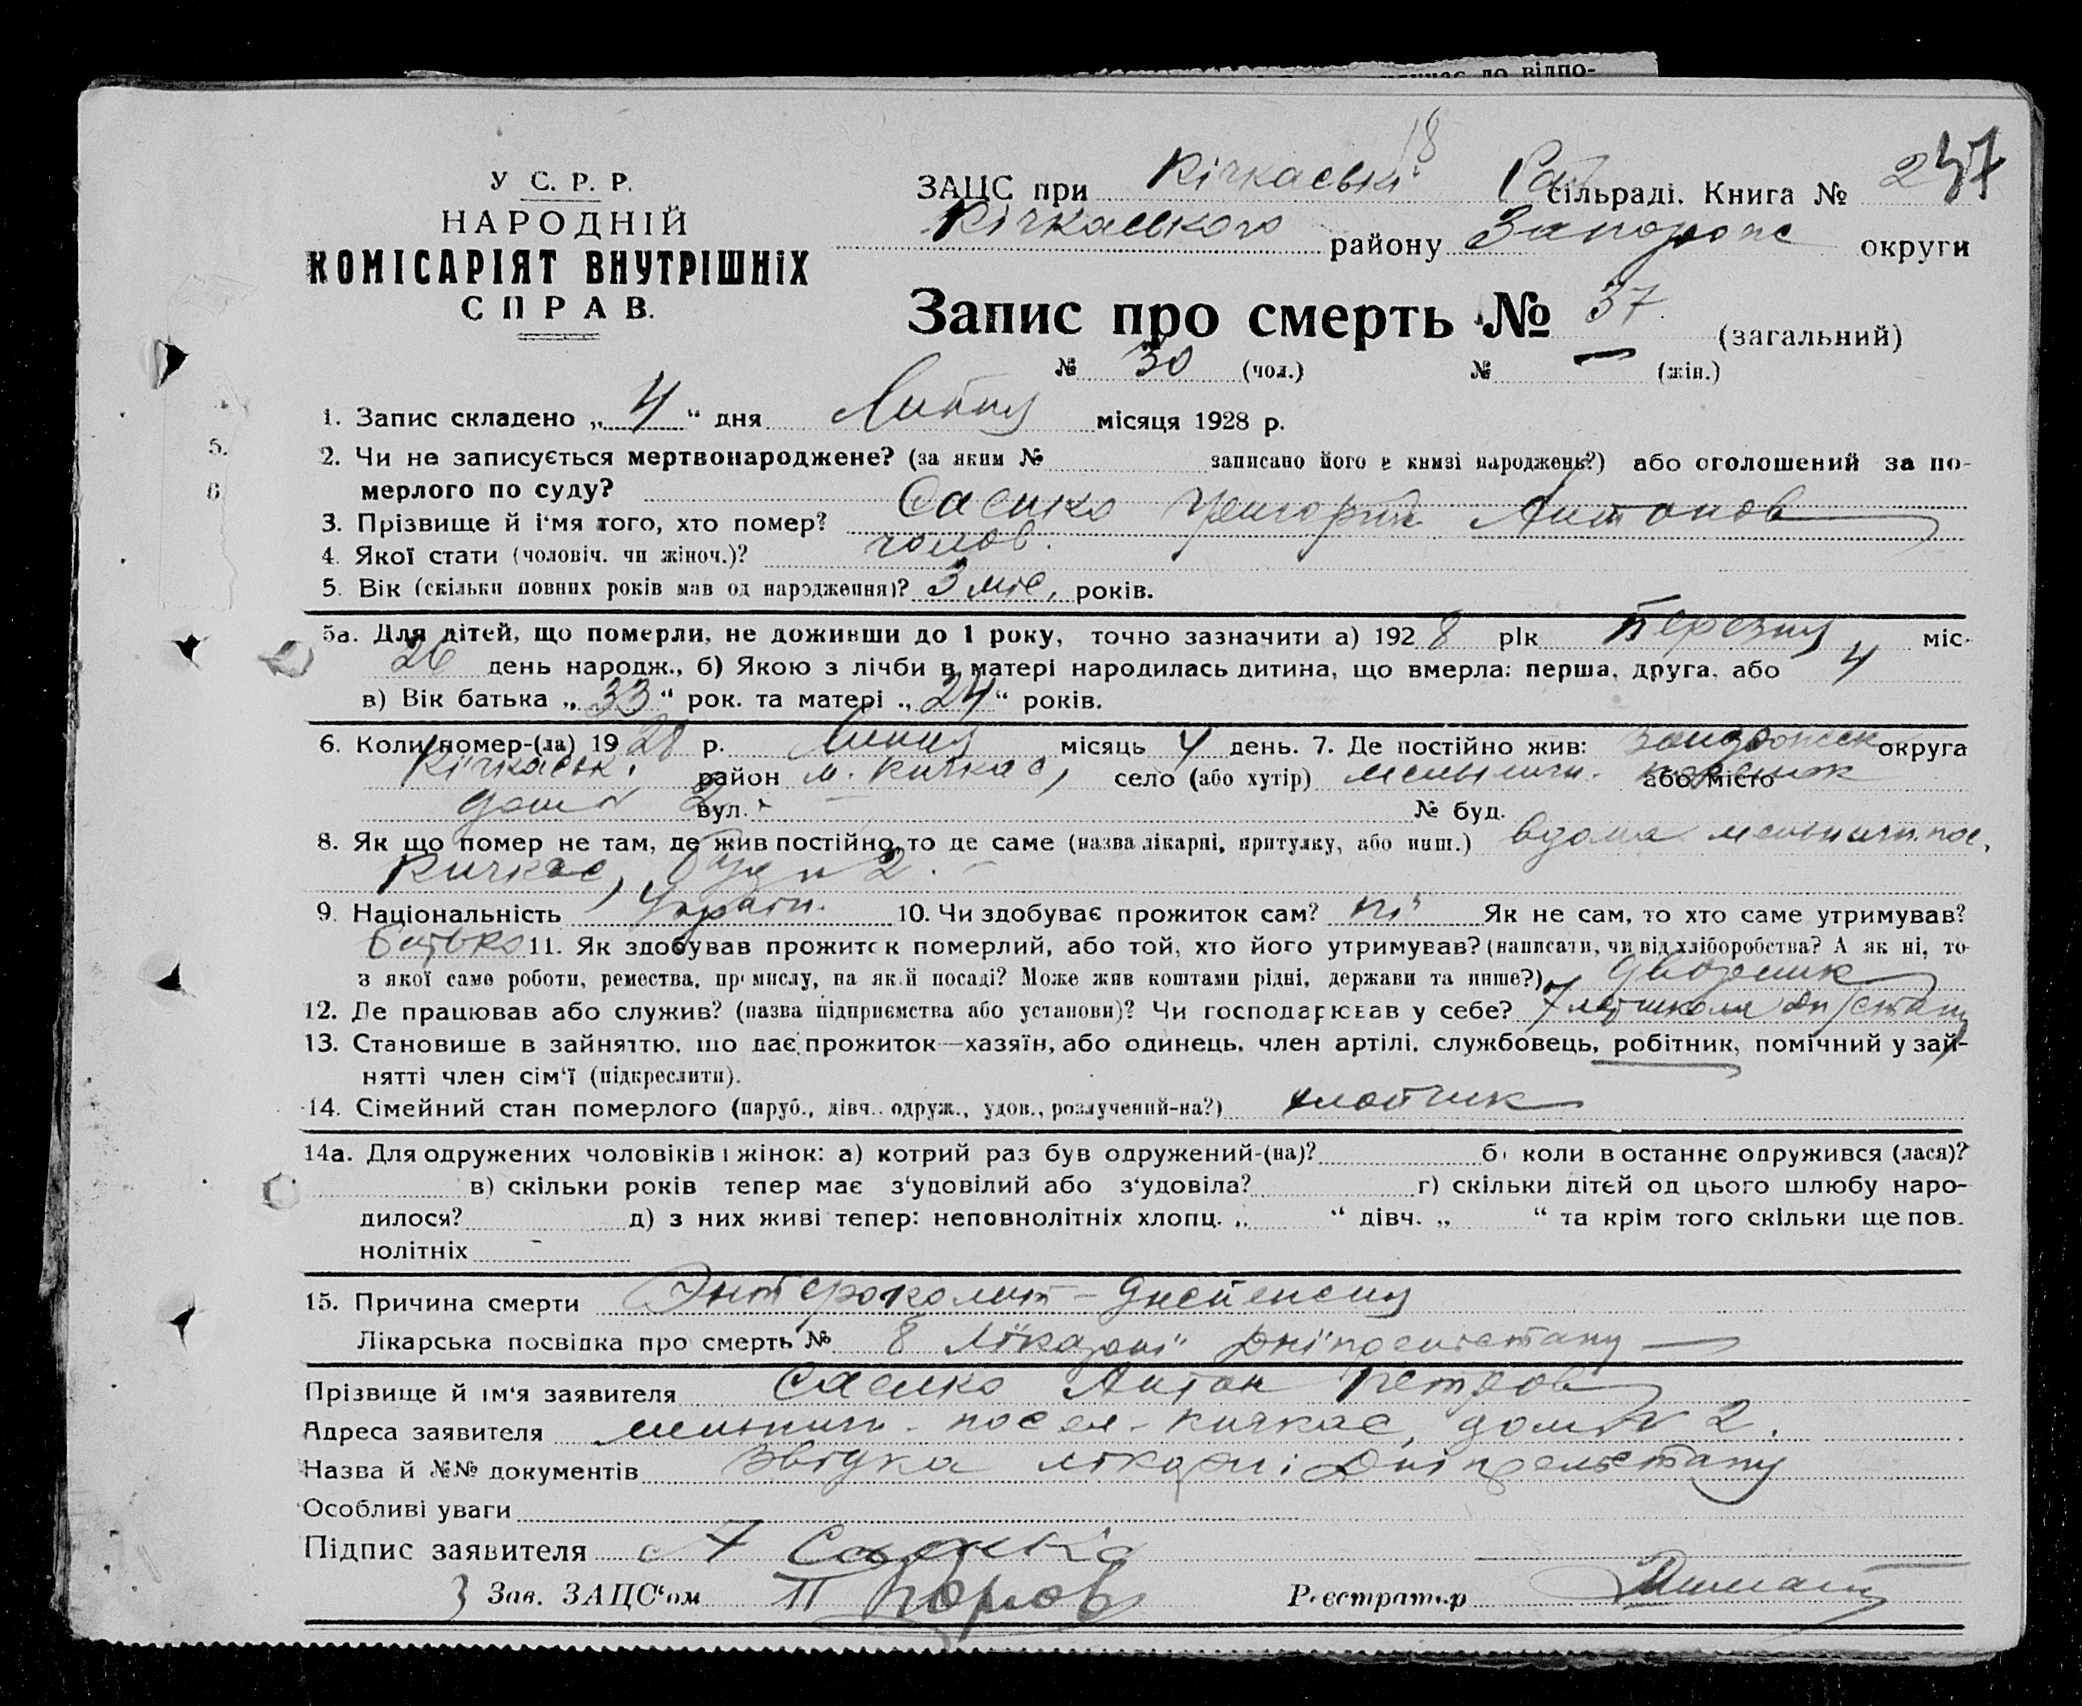 У С. Р. Р.
НАРОДНІЙ
КОМІСАРІЯТ ВНУТРІШНІХ
СПРАВ.
18
ЗАЦС при Кічкаській сільраді. Книга № 247
Кічкаського району Запорожс округи
Запис про смерть № 37. (загальний)
№ 30 (чол.) № — (жін.)
1. Запис складено „ 4 “ дня Липня місяця 1928 р.
2. Чи не записується мертвонароджене? (за яким № записано його в книзі народжень?) або оголошений за по-
мерлого по суду?
3. Прізвище й і‘мя того, хто помер? Саенко Григорий Антонов
4. Якої стати (чоловіч. чи жіноч.)? чолов.
5. Вік (скільки повних років мав од народження)? 3 міс, років.
5а. Для дітей, що померли, не доживши до 1 року, точно зазначити а) 1928 рік Березня міс.
26 день народж., б) Якою з лічби в матері народилась дитина, що вмерла: перша, друга, або 4
в) Вік батька „ 33 “ рок. та матері „ 24 “ років.
6. Коли помер-(ла) 1928 р. Липня місяць 4 день. 7. Де постійно жив: Запорожск округа
Кічкаськ. район м. Кичкас, село (або хутір) або місто
дом № 2 вул. — № буд.
8. Як що помер не там, де жив постійно, то де саме (назва лікарні, притулку, або инш.) вдома пос,
Кичкас, 2. —
9. Національність Україн. 10. Чи здобуває прожиток сам? ні Як не сам, то хто саме утримував?
батько 11. Як здобував прожиток померлий, або той, хто його утримував? (написати, чи від хліборобства? А як ні, то
з якої саме роботи, ремества, промислу, на якій посаді? Може жив коштами рідні, держави та инше?) дворник
12. Де працював або служив? (назва підприємства або установи)? Чи господарював у себе? 7
13. Становише в зайняттю, що дає прожиток—хазяїн, або одинець, член артілі, службовець, робітник, помічний у зай-
нятті член сім‘ї (підкреслити).
14. Сімейний стан померлого (паруб., дівч., одруж., удов., розлучений-на?) хлопчик
14а. Для одружених чоловіків і жінок: а) котрий раз був одружений-(на)? б) коли в останнє одружився (лася)?
в) скільки років тепер має з‘удовілий або з‘удовіла? г) скільки дітей од цього шлюбу наро-
дилося? д) з них живі тепер: неповнолітніх хлопц. „ “ дівч. „ “ та крім того скільки ще пов.
нолітніх
15. Причина смерти Энтероколит - диспепсия
Лікарська посвідка про смерть № 8 Лікарні Дніпрельстану
Прізвище й ім‘я заявителя Саенко Антон Петров
Адреса заявителя посел. Кичкас, дом № 2.
Назва й №№ документів звідка лікарні Дніпрельстану
Особливі уваги
Підпис заявителя А Саенко
Зав. ЗАЦС‘ом
Реєстратор